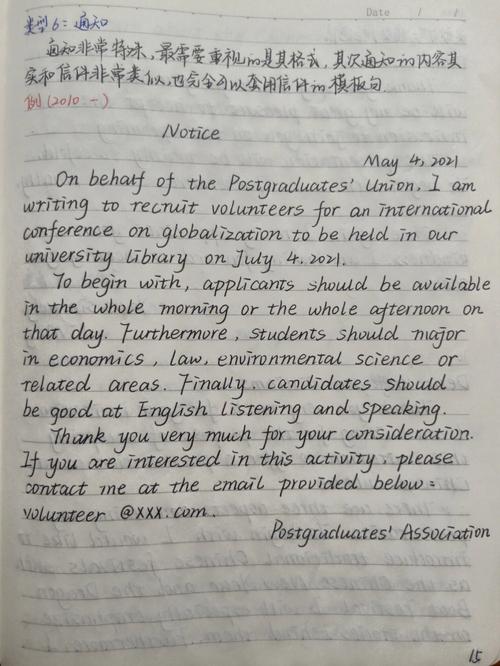 Date / /
类型6：通知
通知非常特殊，最需要重视的是其格式，其次通知的内容其
实和信件非常类似，也完全可以套用信件的模板句.
例(2010 一)
Notice
May 4, 2021
On behalf of the Postgraduates' Union, I am
writing to recruit volunteers for an international
conference on globalization to be held in our
university library on July 4. 2021.
To begin with, applicants should be available
in the whole morning or the whole afternoon on
that day. Furthermore, students should major
in economics, law, environmental science or
related areas. Finally, candidates should
be good at English listening and speaking.
Thank you very much for your consideration.
If you are interested in this activity, please
contact me at the email provided below:
volunteer @xxx.com.
Postgraduates' Association
15